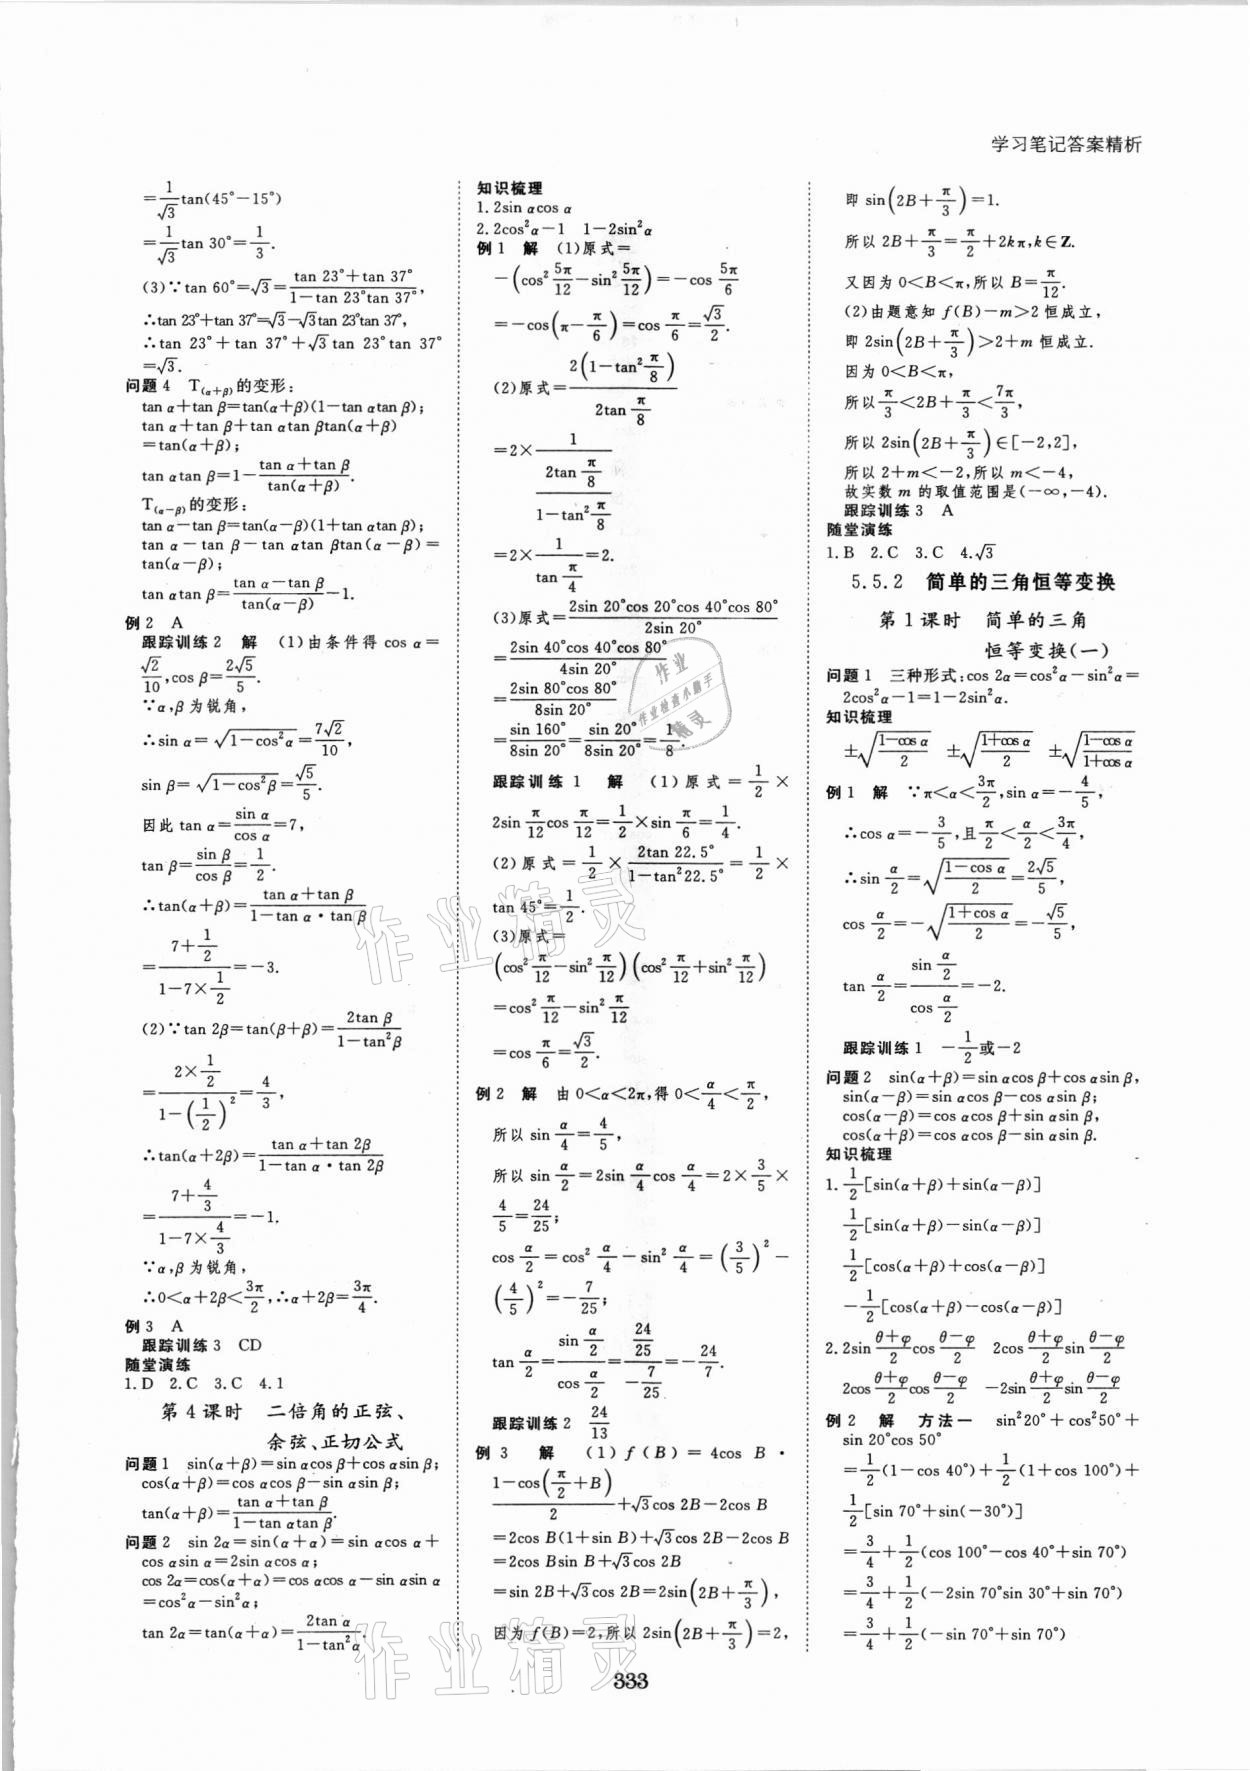 学习笔记答案精析
=1/√3 tan(45°-15°)
=1/√3 tan 30°=1/3.
(3)∵tan 60°=√3=(tan 23°+tan 37°)/(1-tan 23°tan 37°),
∴tan 23°+tan 37°=√3-√3tan 23°tan 37°,
∴tan 23°+tan 37°+√3 tan 23°tan 37°
=√3.
问题4 T(α+β)的变形:
tan α+tan β=tan(α+β)(1-tan αtan β);
tan α+tan β+tan αtan βtan(α+β)
=tan(α+β);
tan αtan β=1-(tan α+tan β)/tan(α+β).
T(α-β)的变形:
tan α-tan β=tan(α-β)(1+tan αtan β);
tan α-tan β-tan αtan βtan(α-β)=
tan(α-β);
tan αtan β=(tan α-tan β)/tan(α-β)-1.
例2 A
跟踪训练2 解 (1)由条件得 cos α=
√2/10,cos β=2√5/5.
∵α,β为锐角,
∴sin α=√(1-cos²α)=7√2/10,
sin β=√(1-cos²β)=√5/5.
因此 tan α=sin α/cos α=7,
tan β=sin β/cos β=1/2.
∴tan(α+β)=(tan α+tan β)/(1-tan α·tan β)
=(7+1/2)/(1-7×1/2)=-3.
(2)∵tan 2β=tan(β+β)=2tan β/(1-tan²β)
=(2×1/2)/(1-(1/2)²)=4/3,
∴tan(α+2β)=(tan α+tan 2β)/(1-tan α·tan 2β)
=(7+4/3)/(1-7×4/3)=-1.
∵α,β为锐角,
∴0<α+2β<3π/2,∴α+2β=3π/4.
例3 A
跟踪训练3 CD
随堂演练
1.D 2.C 3.C 4.1
第4课时 二倍角的正弦、
余弦、正切公式
问题1 sin(α+β)=sin αcos β+cos αsin β;
cos(α+β)=cos αcos β-sin αsin β;
tan(α+β)=(tan α+tan β)/(1-tan αtan β).
问题2 sin 2α=sin(α+α)=sin αcos α+
cos αsin α=2sin αcos α;
cos 2α=cos(α+α)=cos αcos α-sin αsin α
=cos²α-sin²α;
tan 2α=tan(α+α)=2tan α/(1-tan²α).
知识梳理
1.2sin αcos α
2.2cos²α-1 1-2sin²α
例1 解 (1)原式=
-(cos² 5π/12-sin² 5π/12)=-cos 5π/6
=-cos(π-π/6)=cos π/6=√3/2.
(2)原式=2(1-tan² π/8)/(2tan π/8)
=2×1/(2tan π/8/(1-tan² π/8))
=2×1/(tan π/4)=2.
(3)原式=(2sin 20°cos 20°cos 40°cos 80°)/(2sin 20°)
=(2sin 40°cos 40°cos 80°)/(4sin 20°)
=(2sin 80°cos 80°)/(8sin 20°)
=sin 160°/(8sin 20°)=sin 20°/(8sin 20°)=1/8.
跟踪训练1 解 (1)原式=1/2×
2sin π/12 cos π/12=1/2×sin π/6=1/4.
(2)原式=1/2×2tan 22.5°/(1-tan²22.5°)=1/2×
tan 45°=1/2.
(3)原式=
(cos² π/12-sin² π/12)(cos² π/12+sin² π/12)
=cos² π/12-sin² π/12
=cos π/6=√3/2.
例2 解 由0<α<2π,得0<α/4<π/2,
所以 sin α/4=4/5,
所以 sin α/2=2sin α/4 cos α/4=2×3/5×
4/5=24/25;
cos α/2=cos² α/4-sin² α/4=(3/5)²-
(4/5)²=-7/25;
tan α/2=(sin α/2)/(cos α/2)=(24/25)/(-7/25)=-24/7.
跟踪训练2 24/13
例3 解 (1)f(B)=4cos B·
(1-cos(π/2+B))/2+√3cos 2B-2cos B
=2cos B(1+sin B)+√3cos 2B-2cos B
=2cos Bsin B+√3cos 2B
=sin 2B+√3cos 2B=2sin(2B+π/3),
因为 f(B)=2,所以 2sin(2B+π/3)=2,
即 sin(2B+π/3)=1.
所以 2B+π/3=π/2+2kπ,k∈Z.
又因为 0<B<π,所以 B=π/12.
(2)由题意知 f(B)-m>2 恒成立,
即 2sin(2B+π/3)>2+m 恒成立.
因为 0<B<π,
所以π/3<2B+π/3<7π/3,
所以 2sin(2B+π/3)∈[-2,2],
所以 2+m<-2,所以 m<-4,
故实数 m 的取值范围是(-∞,-4).
跟踪训练3 A
随堂演练
1.B 2.C 3.C 4.√3
5.5.2 简单的三角恒等变换
第1课时 简单的三角
恒等变换(一)
问题1 三种形式:cos 2α=cos²α-sin²α=
2cos²α-1=1-2sin²α.
知识梳理
±√((1-cos α)/2) ±√((1+cos α)/2) ±√((1-cos α)/(1+cos α))
例1 解 ∵π<α<3π/2,sin α=-4/5,
∴cos α=-3/5,且π/2<α/2<3π/4,
∴sin α/2=√((1-cos α)/2)=2√5/5,
cos α/2=-√((1+cos α)/2)=-√5/5,
tan α/2=(sin α/2)/(cos α/2)=-2.
跟踪训练1 -1/2或-2
问题2 sin(α+β)=sin αcos β+cos αsin β,
sin(α-β)=sin αcos β-cos αsin β;
cos(α-β)=cos αcos β+sin αsin β,
cos(α+β)=cos αcos β-sin αsin β.
知识梳理
1.1/2[sin(α+β)+sin(α-β)]
1/2[sin(α+β)-sin(α-β)]
1/2[cos(α+β)+cos(α-β)]
-1/2[cos(α+β)-cos(α-β)]
2.2sin (θ+φ)/2 cos (θ-φ)/2 2cos (θ+φ)/2 sin (θ-φ)/2
2cos (θ+φ)/2 cos (θ-φ)/2 -2sin (θ+φ)/2 sin (θ-φ)/2
例2 解 方法一 sin²20°+cos²50°+
sin 20°cos 50°
=1/2(1-cos 40°)+1/2(1+cos 100°)+
1/2[sin 70°+sin(-30°)]
=3/4+1/2(cos 100°-cos 40°+sin 70°)
=3/4+1/2(-2sin 70°sin 30°+sin 70°)
=3/4+1/2(-sin 70°+sin 70°)
333
作业
作业检查小助手
精灵
作业精灵
作业精灵